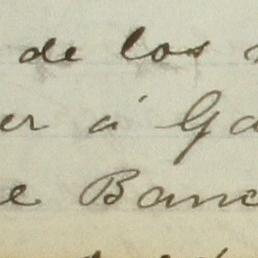 de los
er á Ga
e Banc